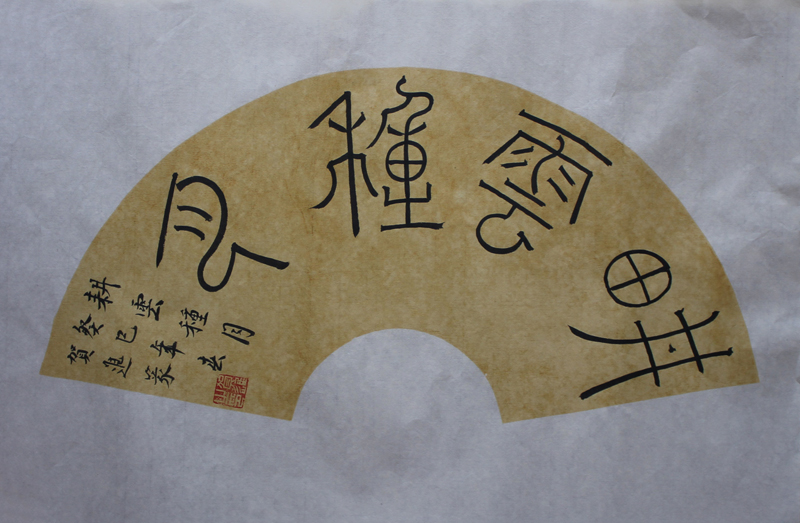 畊雲種月
耕雲種月
癸巳年
賀進篆